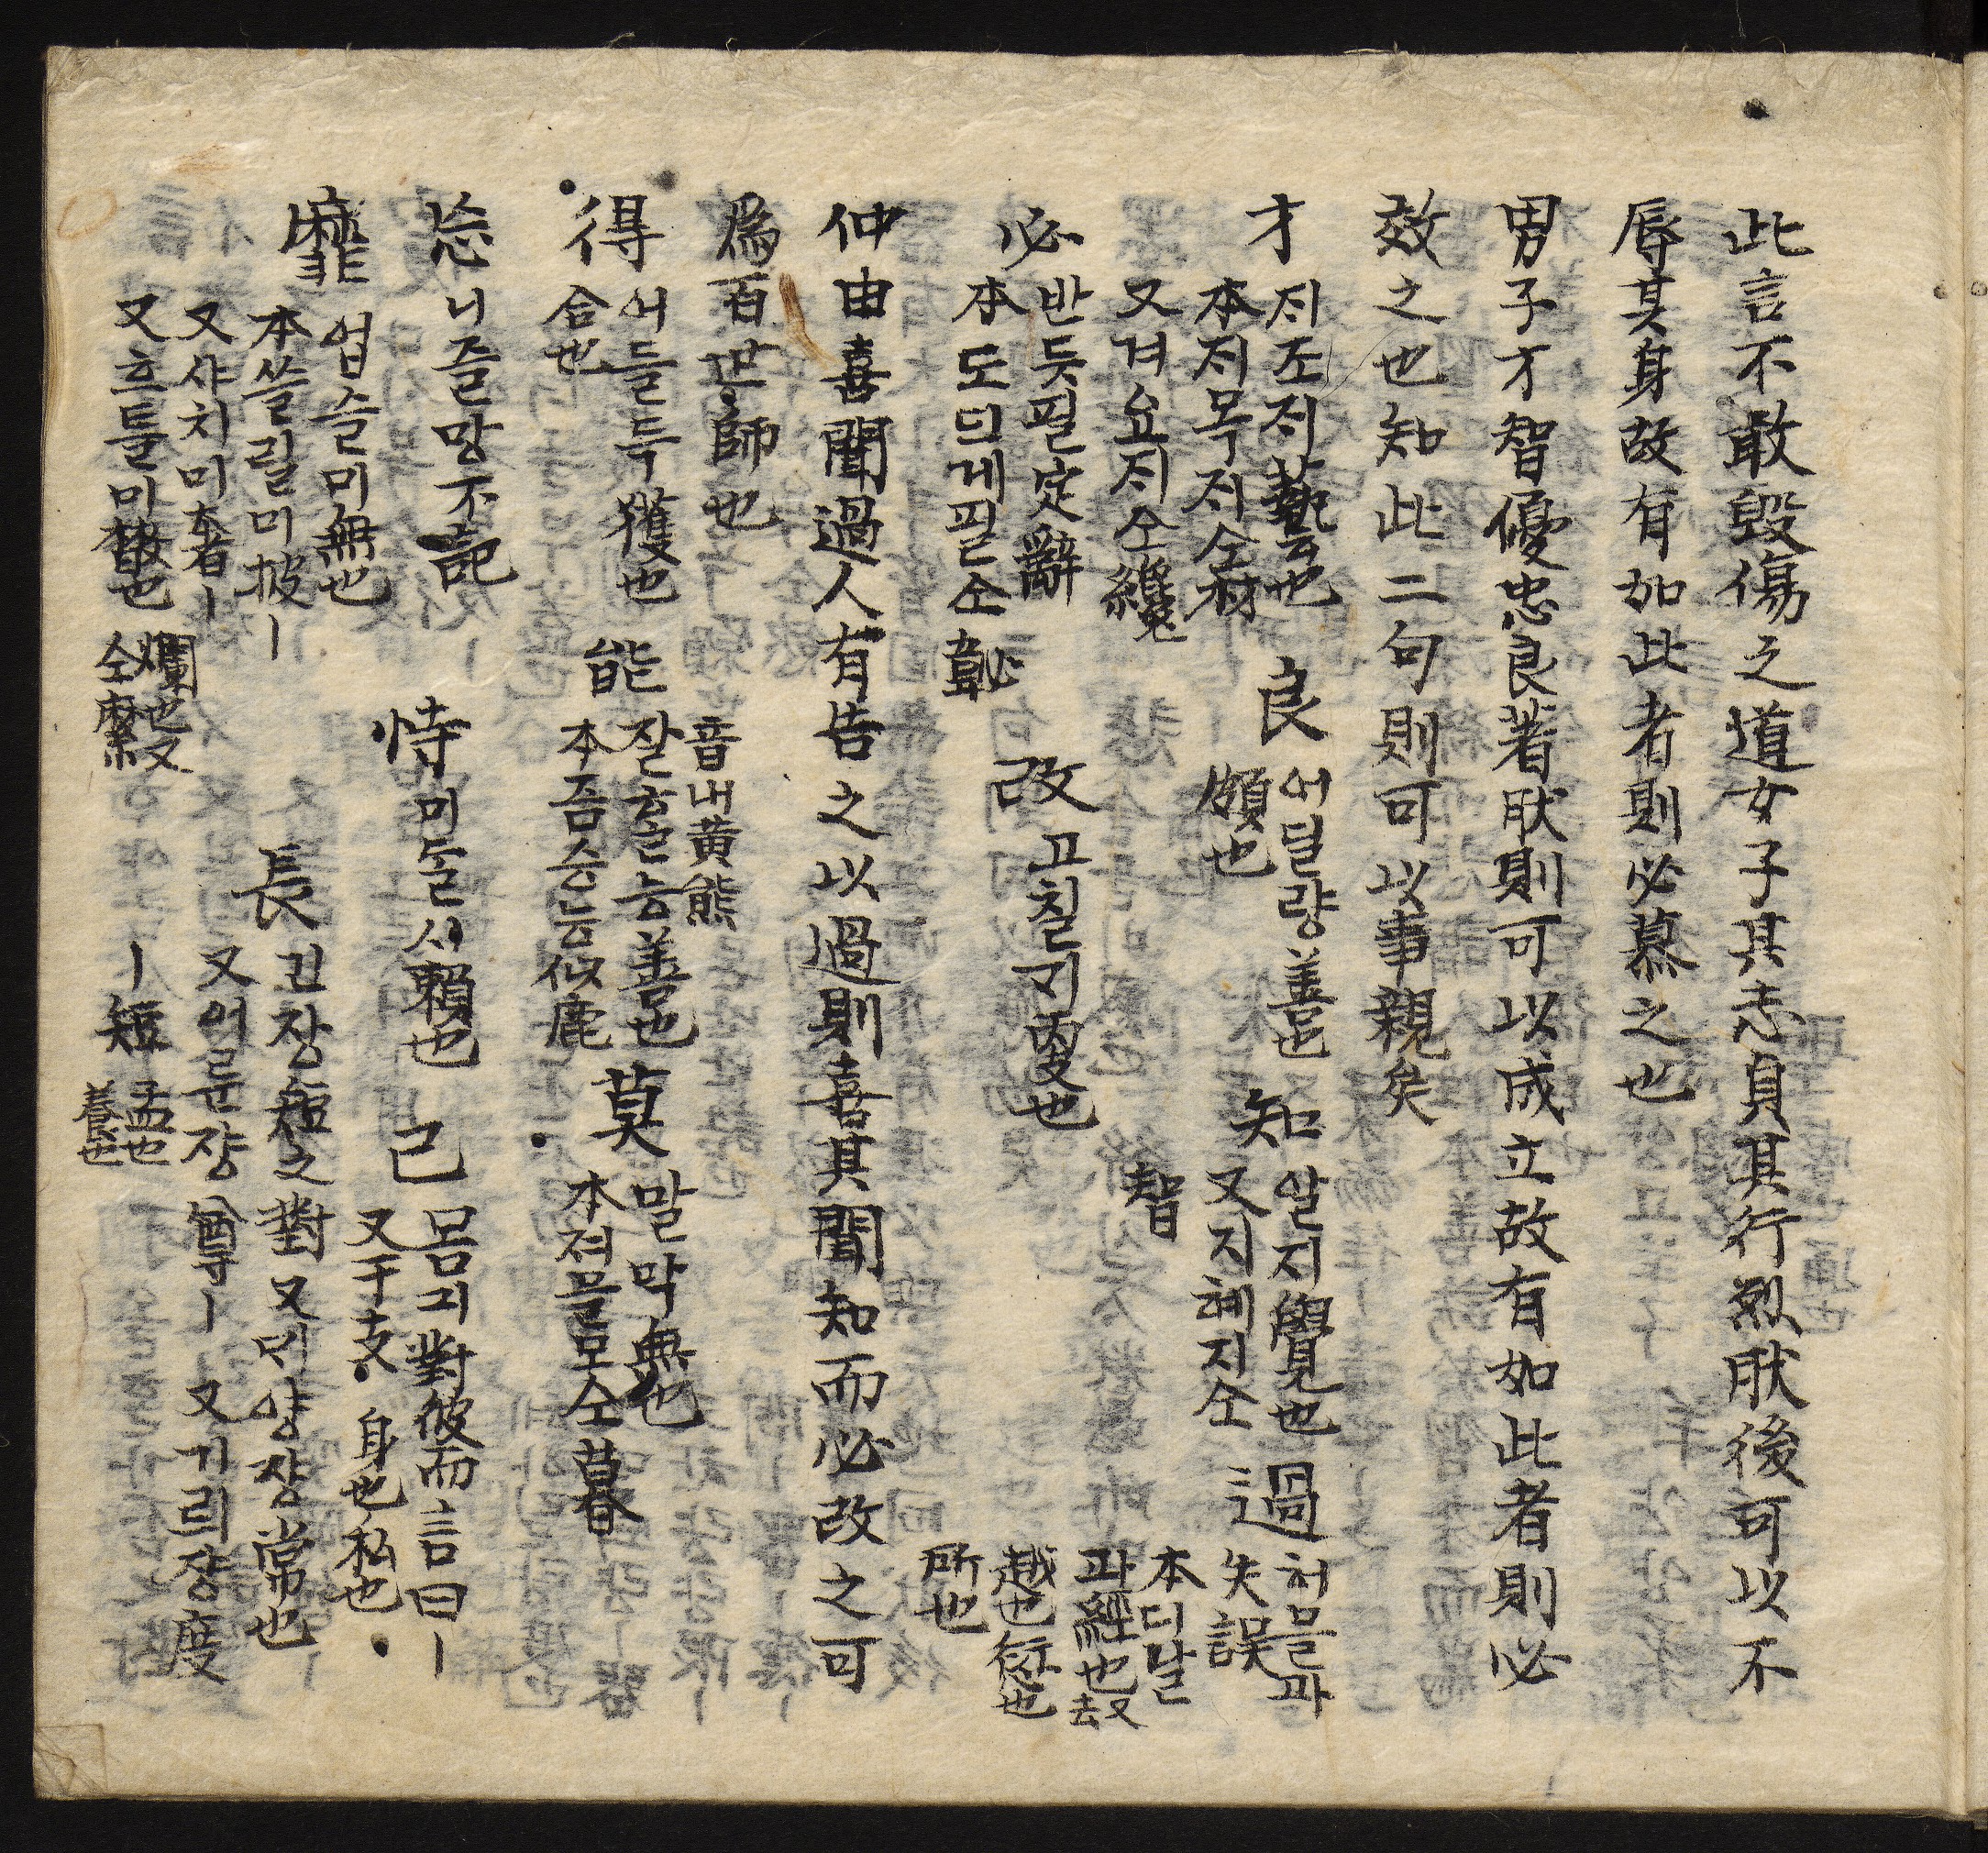 此言不敢毁傷之道女子其志貞其行烈肰後可以不
辱其身故有如此者則必慕之也
男子才智優忠良著肰則可以成立故有如此者則必
效之也知此二句則可以事親矣
才 ᄌᆡ조ᄌᆡ藝也
本ᄌᆡ목ᄌᆡ仝材
又겨요ᄌᆡ仝纔
良 어딜량善也
頗也
知 알지覺也
又지혜지仝
智
過 허믈과
失誤
本디날
과經也又去
越也愆也
所也
必 반듯필定辭
本도듸게필仝
改 고칠ᄀᆡ更也
仲由喜聞過人有告之以過則喜其聞知而必改之可
爲百世師也
得 어들득獲也
合也
能 音내黃熊
잘ᄒᆞᆯ능善也
本즘승능似鹿
莫 말막無也
本져믈모仝暮
忘 니즐망不記
恃 미들시賴也
己 몸긔對彼而言曰ㅣ
又干支 身也私也
靡 업슬미無也
本쓸릴미披ㅣ
又샤치미奢ㅣ
又흐틀미散也
爛也又
仝糜
長 긴쟝短之對又댱양쟝常也
又어룬쟝尊ㅣ 又기릐쟝度
ㅣ短 孟也
養也